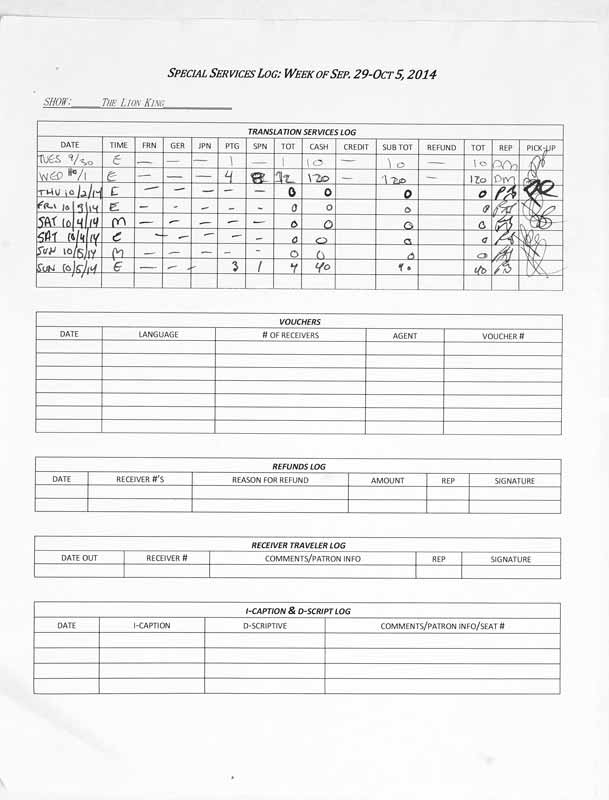 SPECIAL SERVICES LOG: WEEK OF SEP. 29-OCT 5, 2014
SHOW: THE LION KING
TRANSLATION SERVICES LOG
DATE TIME FRN GER JPN PTG SPN TOT CASH CREDIT SUB TOT REFUND TOT REP PICK-UP
TUES 9/30 E — — — 1 — 1 10 — 10 — 10 DM
WED 10/1 E — — — 4 8 12 120 — 120 — 120 DM
THU 10/2/14 E — — — — — 0 0 0 0
FRI 10/3/14 E — — — — — 0 0 0 0
SAT 10/4/14 M — — — — — 0 0 0 0
SAT 10/4/14 E — — — — — 0 0 0 0
SUN 10/5/14 M — — — — — 0 0 0 0
SUN 10/5/14 E — — — 3 1 4 40 40 40
VOUCHERS
DATE LANGUAGE # OF RECEIVERS AGENT VOUCHER #
REFUNDS LOG
DATE RECEIVER #'S REASON FOR REFUND AMOUNT REP SIGNATURE
RECEIVER TRAVELER LOG
DATE OUT RECEIVER # COMMENTS/PATRON INFO REP SIGNATURE
I-CAPTION & D-SCRIPT LOG
DATE I-CAPTION D-SCRIPTIVE COMMENTS/PATRON INFO/SEAT #